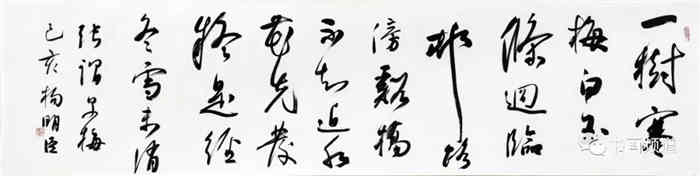 一樹寒
梅白玉
條迴臨
邨路
傍谿橋
不知近水
花先發
疑是經
冬雪未消
張謂早梅
己亥楊明臣
书画频道